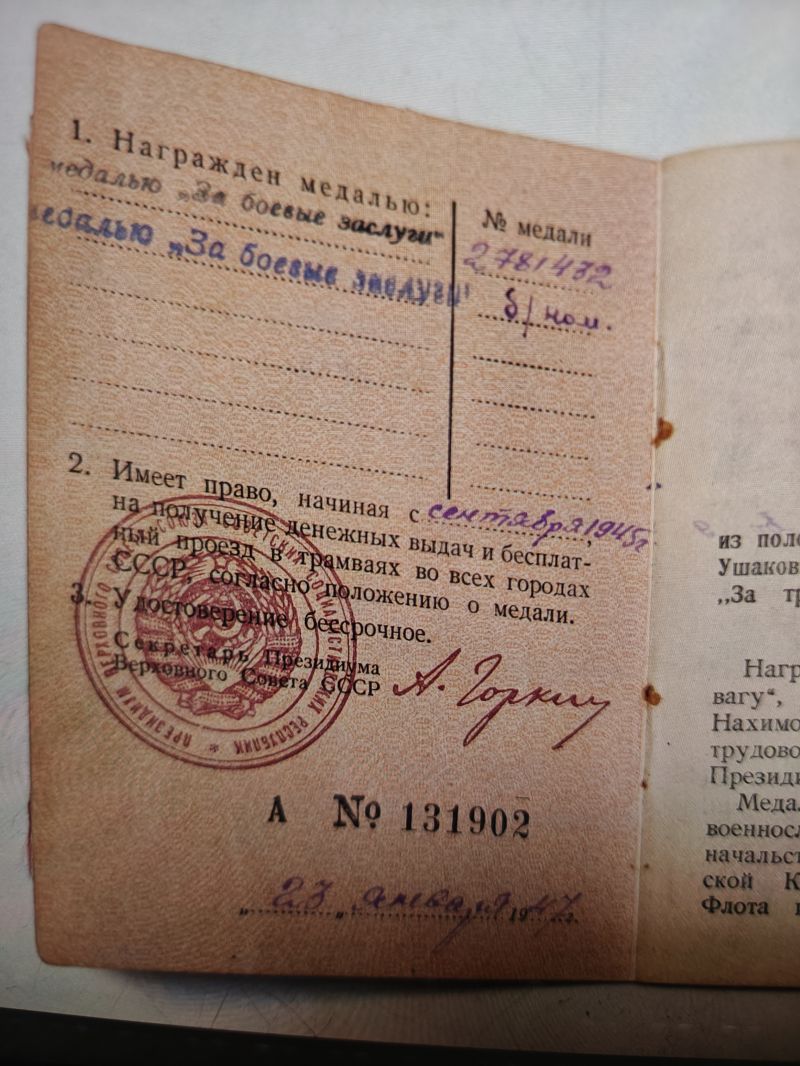 1. Награжден медалью:
медалью „За боевые заслуги“
медалью „За боевые заслуги“
№ медали
2781432
б/ном.
2. Имеет право, начиная с сентября 1945г,
на получение денежных выдач и бесплат-
ный проезд в трамваях во всех городах
СССР, согласно положению о медали.
3. Удостоверение бессрочное.
Секретарь Президиума
Верховного Совета СССР
А. Горкин
ПРЕЗИДИУМ ВЕРХОВНОГО СОВЕТА СОЮЗА СОВЕТСКИХ СОЦИАЛИСТИЧЕСКИХ РЕСПУБЛИК
А № 131902
„23„ января 1947г.
из поло
Ушаков
„За тр
Нагр
вагу“,
Нахимо
трудово
Президи
Меда
военносл
начальст
ской К
Флота